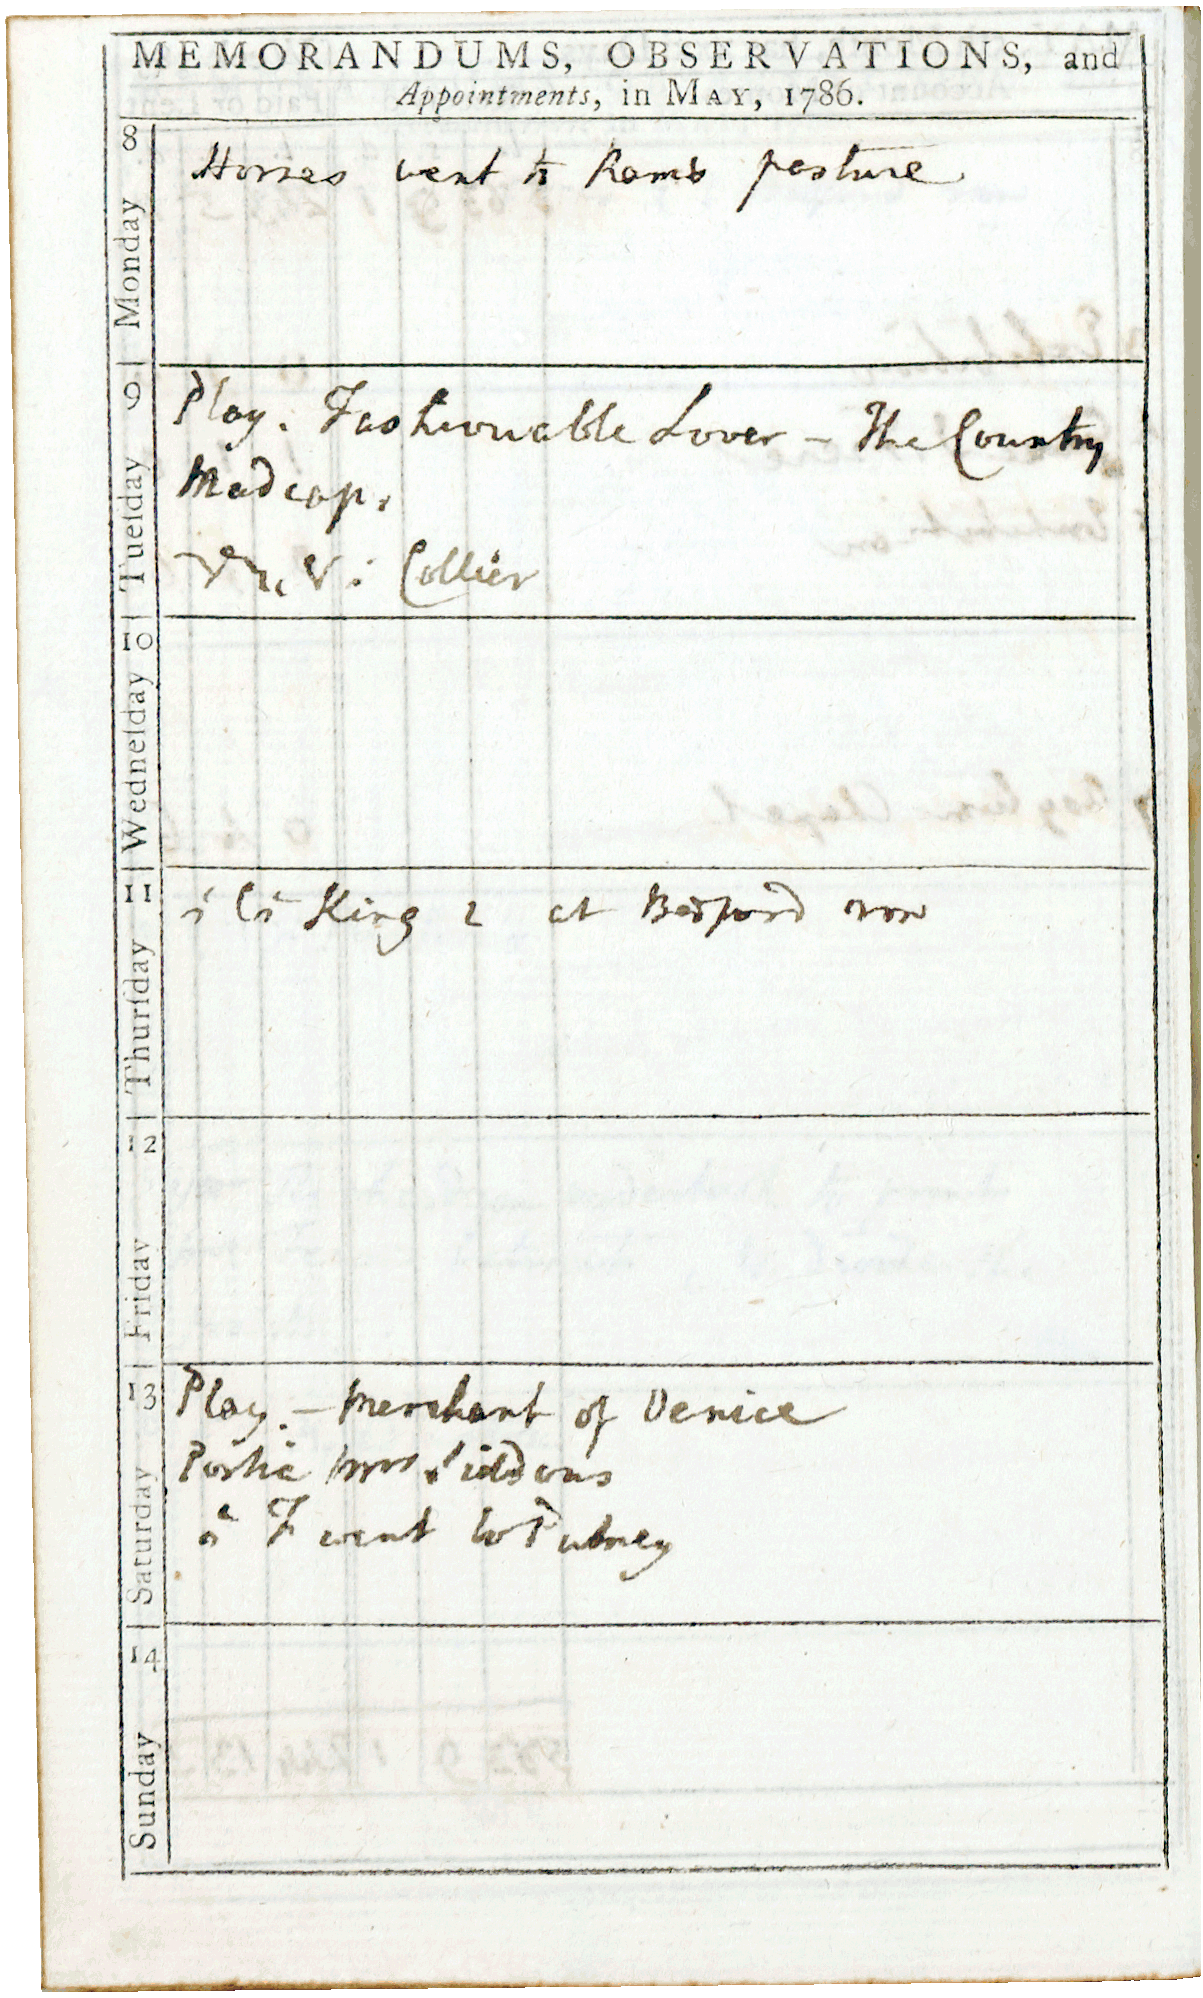 MEMORANDUMS, OBSERVATIONS, and
Appointments, in MAY, 1786.
8 Monday
Horses went to Rams pasture
9 Tueſday
Play. Fashionable Lover – The Country
Madcap.
V: Collier
10 Wedneſday
11 Thurſday
King 2 at Bedford row
12 Friday
13 Saturday
Play. – Merchant of Venice
Portia Mrs Siddons
F went to Putney
14 Sunday